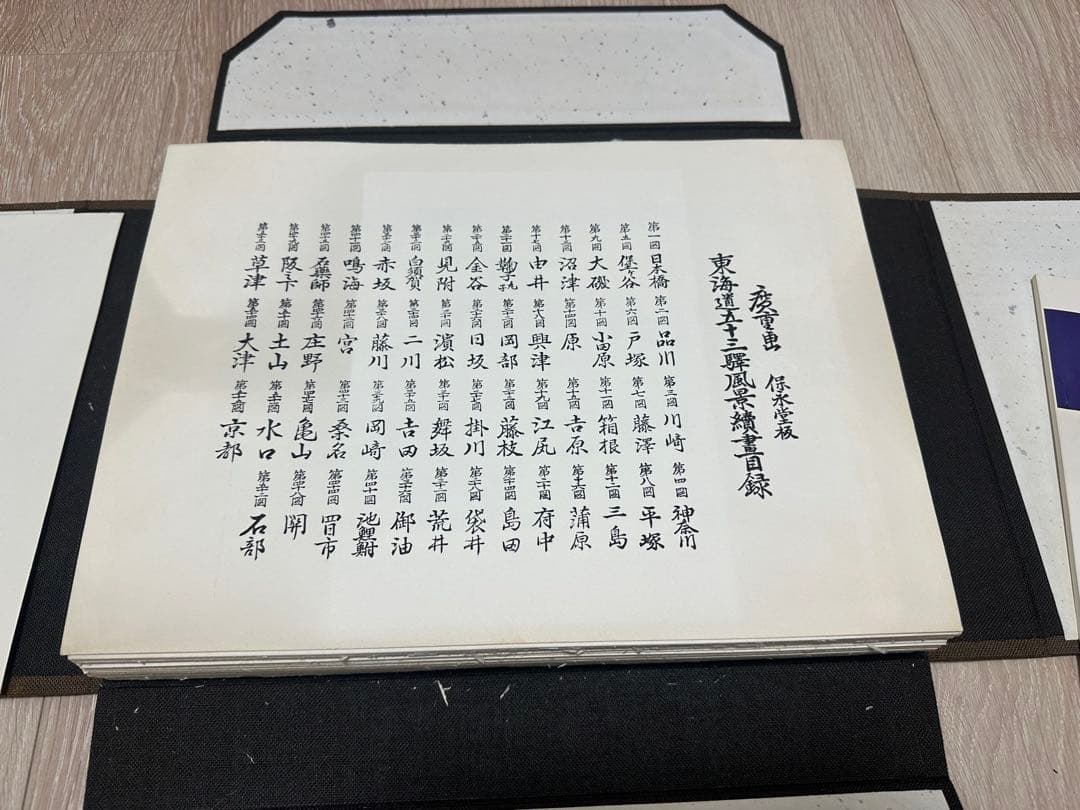 廣重画　保永堂板
東海道五十三驛風景續畫目録
第一図 日本橋 第二図 品川 第三図 川崎 第四図 神奈川
第五図 堡ヶ谷 第六図 戸塚 第七図 藤澤 第八図 平塚
第九図 大磯 第十図 小田原 第十一図 箱根 第十二図 三島
第十三図 沼津 第十四図 原 第十五図 吉原 第十六図 蒲原
第十七図 由井 第十八図 興津 第十九図 江尻 第二十図 府中
第二十一図 鞠子 第二十二図 岡部 第二十三図 藤枝 第二十四図 島田
第二十五図 金谷 第二十六図 日坂 第二十七図 掛川 第二十八図 袋井
第二十九図 見附 第三十図 濱松 第三十一図 舞坂 第三十二図 荒井
第三十三図 白須賀 第三十四図 二川 第三十五図 吉田 第三十六図 御油
第三十七図 赤坂 第三十八図 藤川 第三十九図 岡崎 第四十図 池鯉鮒
第四十一図 鳴海 第四十二図 宮 第四十三図 桑名 第四十四図 四日市
第四十五図 石藥師 第四十六図 庄野 第四十七図 亀山 第四十八図 関
第四十九図 阪之下 第五十図 土山 第五十一図 水口 第五十二図 石部
第五十三図 草津 第五十四図 大津 第五十五図 京都